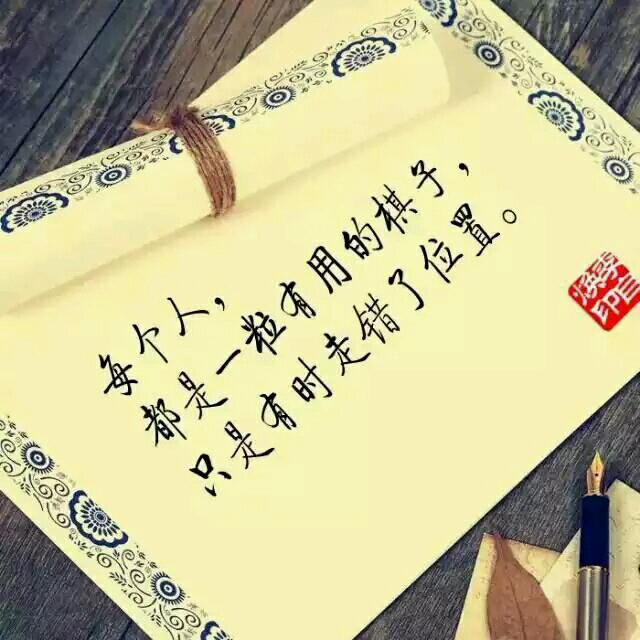 每个人，
都是一粒有用的棋子，
只是有时走错了位置。